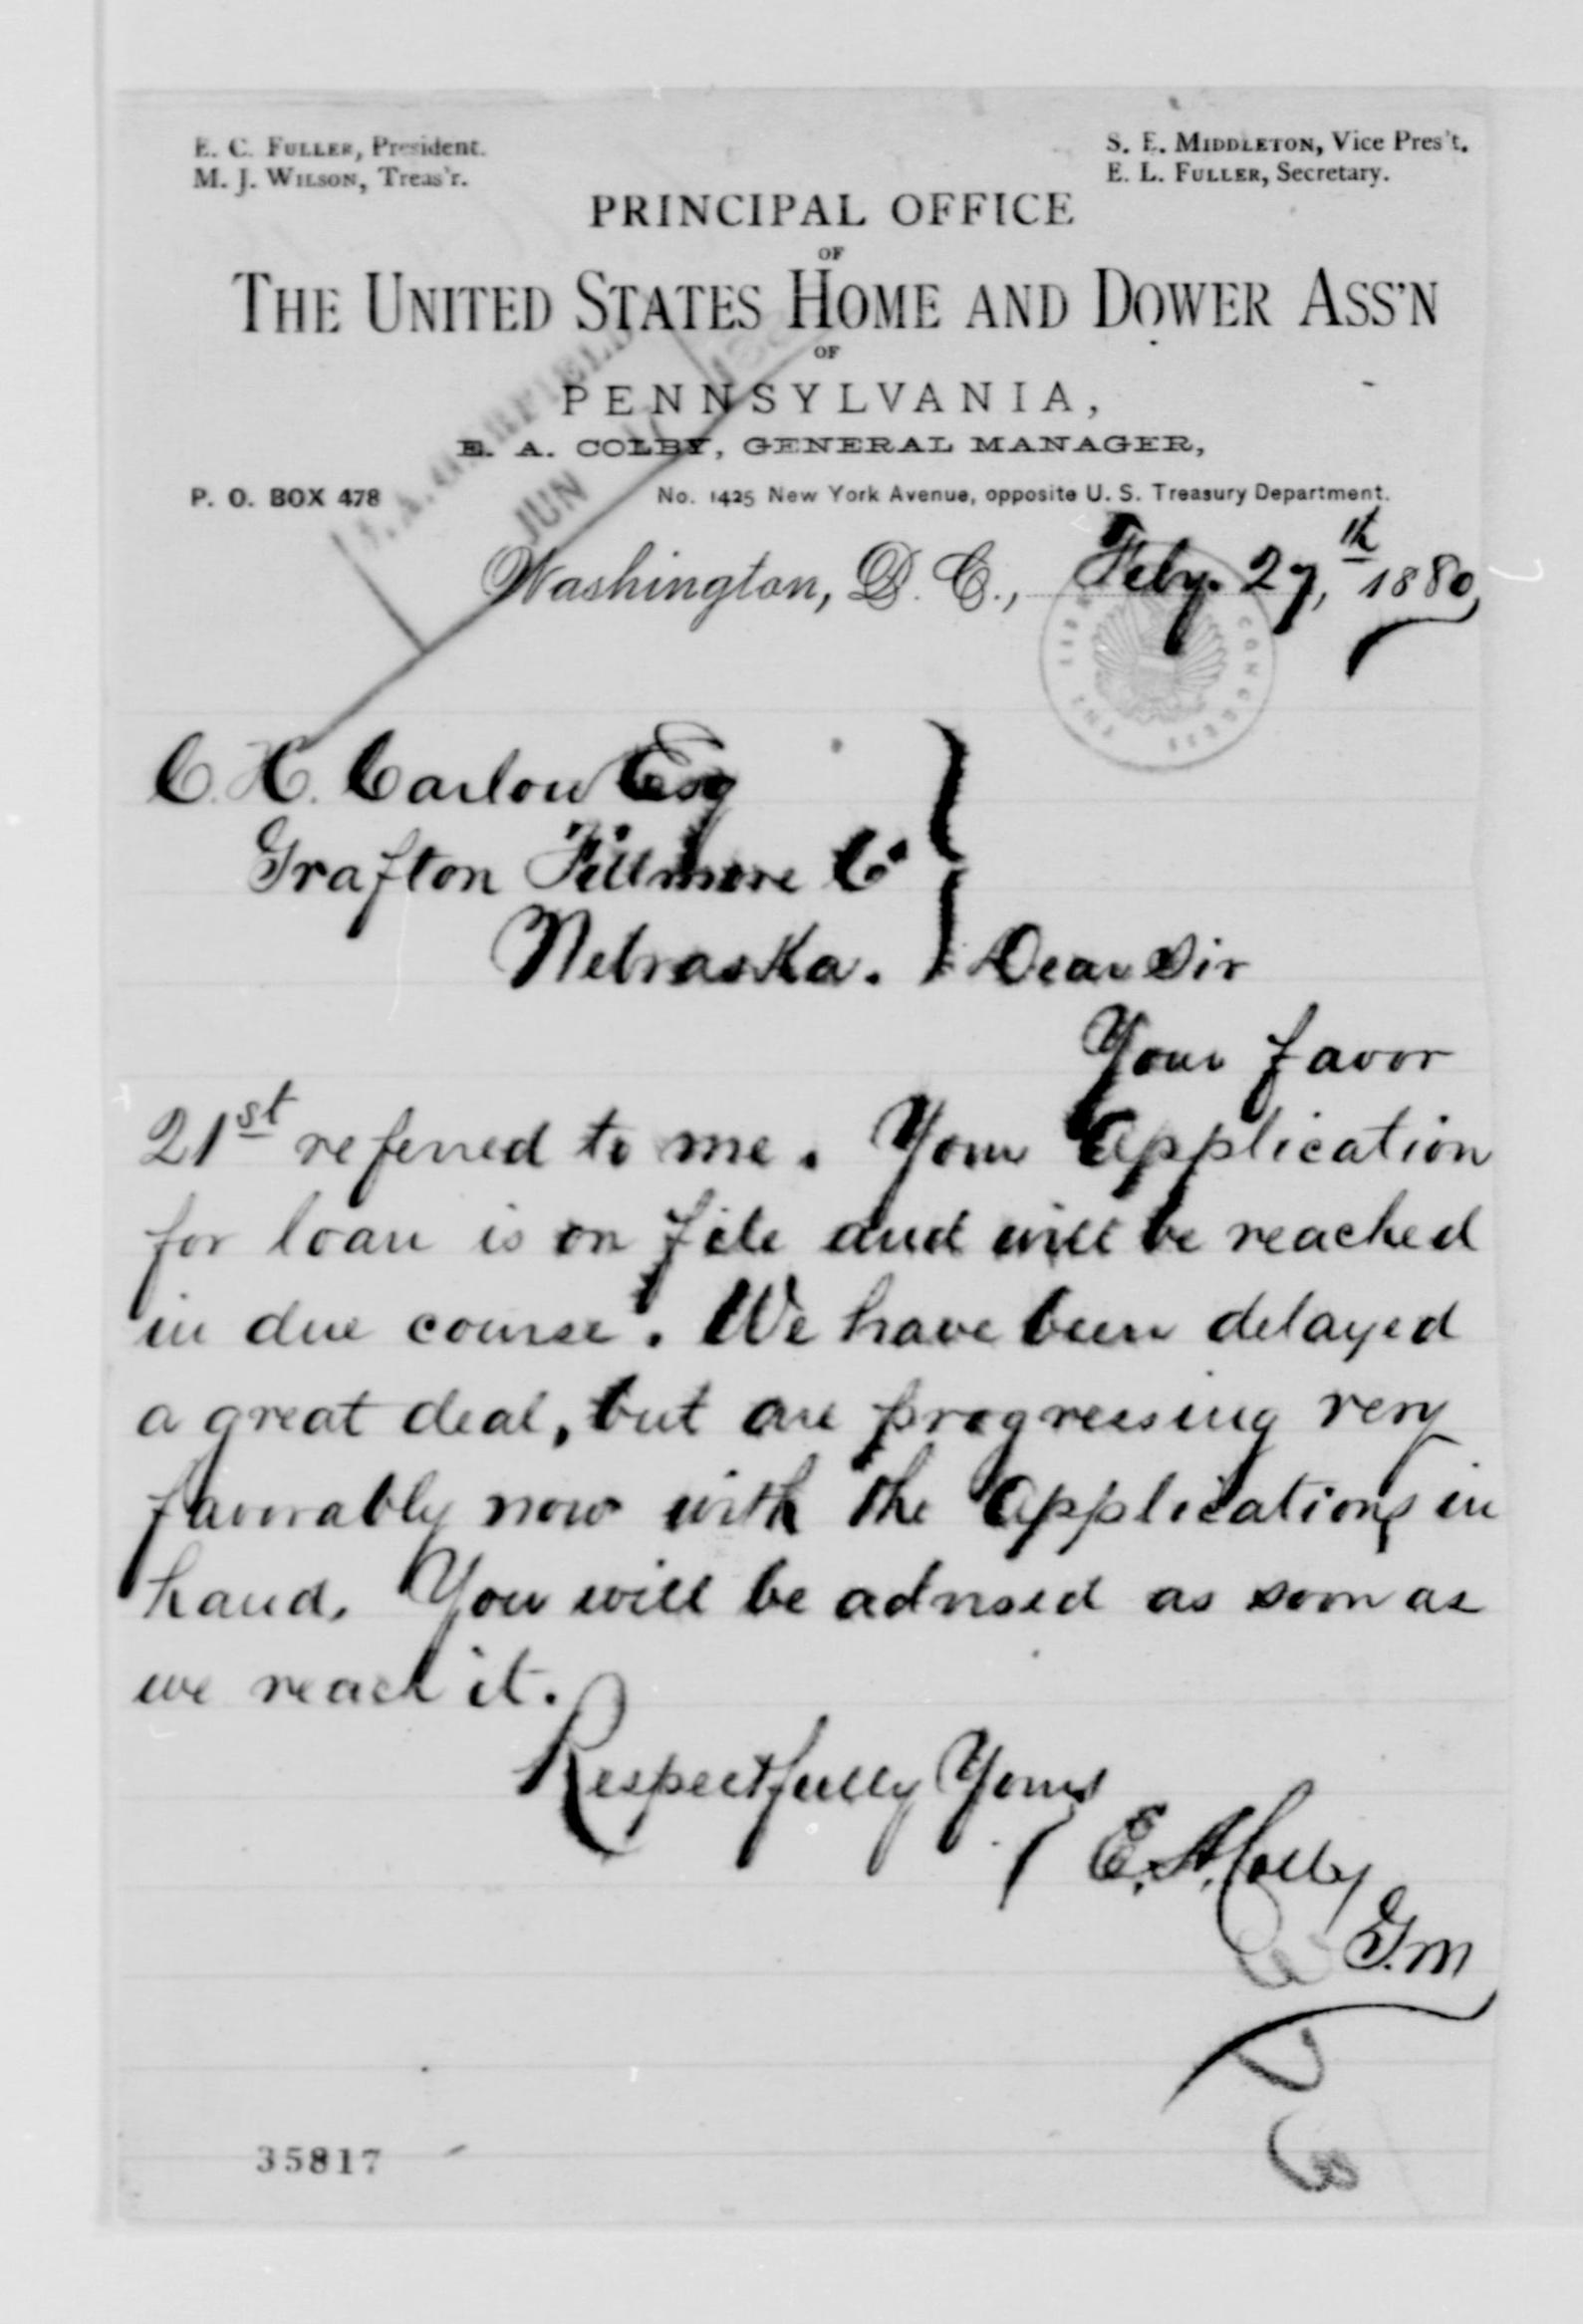 E. C. Fuller, President.
M. J. Wilson, Treas'r.
S. E. Middleton, Vice Pres't.
E. L. Fuller, Secretary.
PRINCIPAL OFFICE
OF
The United States Home and Dower Ass'n
OF
PENNSYLVANIA,
E. A. COLBY, GENERAL MANAGER,
P. O. BOX 478
No. 1425 New York Avenue, opposite U. S. Treasury Department.
J. A. GARFIELD
JUN
Washington, D. C., Feby. 27,th 1880
THE LIBRARY CONGRESS
C. H. Carlow Esq
Grafton Fillmore Co
Nebraska. } Dear Sir
Your favor
21st referred to me. Your Application
for loan is on file and will be reached
in due course. We have been delayed
a great deal, but are progressing very
favorably now with the Applications in
hand. You will be advised as soon as
we reach it.
Respectfully Yours
E. A. Colby
G. M
35817